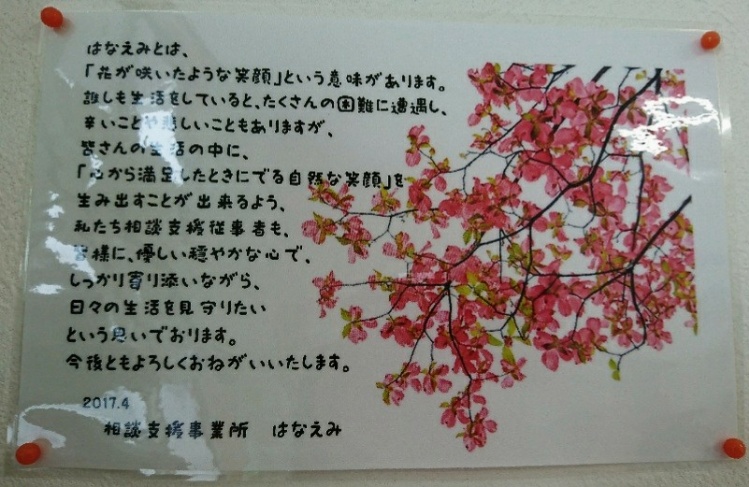 はなえみとは、
「花が咲いたような笑顔」という意味があります。
誰しも生活をしていると、たくさんの困難に遭遇し、
辛いことや悲しいこともありますが、
皆さんの生活の中に、
「心から満足したときにでる自然な笑顔」を
生み出すことが出来るよう、
私たち相談支援従事者も、
皆様に、優しい穏やかな心で、
しっかり寄り添いながら、
日々の生活を見守りたい
という思いでおります。
今後ともよろしくおねがいいたします。
2017.4
相談支援事業所　はなえみ